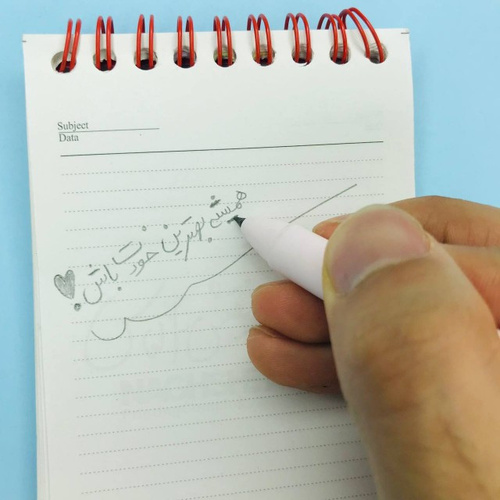 Subject
Data
همیشه بهترین خودت باش